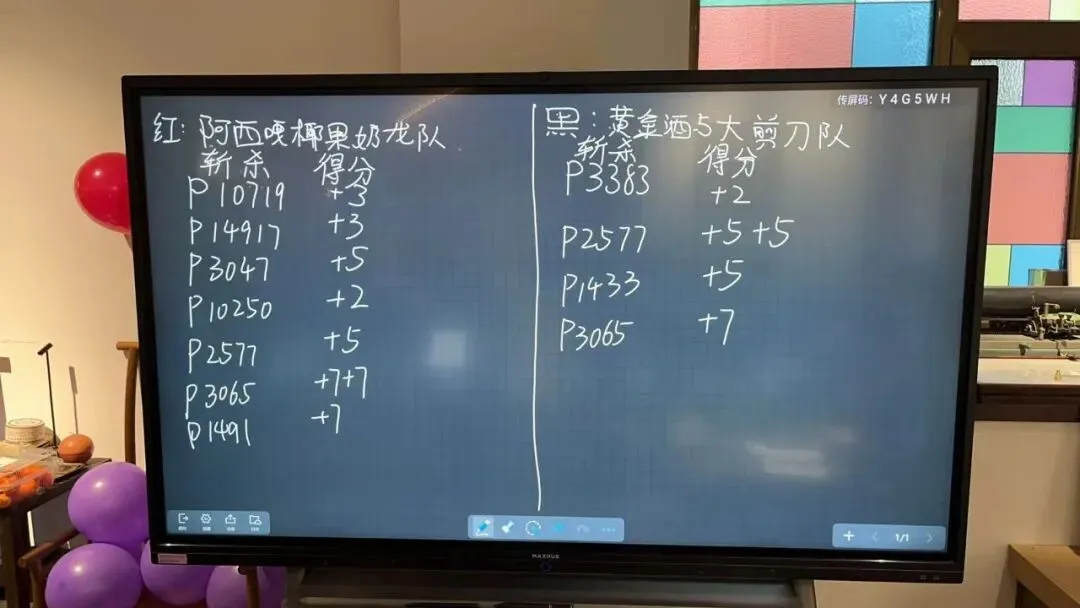 传屏码：Y4G5WH
红：阿西嘎椰果奶龙队
斩杀 得分
P10719 +3
P14917 +3
P3047 +5
P10250 +2
P2577 +5
P3065 +7+7
P1491 +7
黑：黄金洒与大剪刀队
斩杀 得分
P3383 +2
P2577 +5+5
P1433 +5
P3065 +7
MAXHUB
1/1